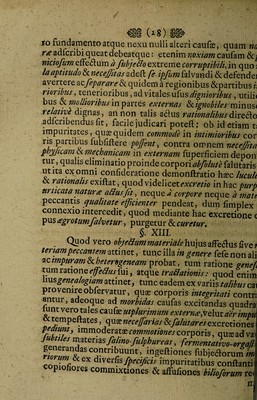 (28)
ro fundamento atque nexu nulli alteri causæ, quam
ræ adscribi queat debeatque: etenim noxiam causam &
niciosum effectum à subjecto extreme corruptibili, in quo
la aptitudo & necessitas adest se ipsum salvandi & defende
avertere ac separare & quidem à regionibus & partibus
rioribus, tenerioribus, ad vitales usus dignioribus, utili
bus & mollioribus in partes externas & ignobiles minus
relativè dignas, an non talis actus rationalibus directo
adscribendus sit, facile judicari potest; ob id etiam
impuritates, quæ quidem commodè in intimioribus cor
ris partibus subsistere possent, contra omnem necessita
physicam & mechanicam in externam superficiem depon
tur, qualis eliminatio proinde corpori absolutè salutaris
ut ita ex omni consideratione demonstratio hæc lucule
& rationalis existat, quod videlicet excretio in hac purp
urticata naturæ actus sit, neque à corpore neque à mate
peccantis qualitate efficienter pendeat, dum simplex
connexio intercedit, quod mediante hac excretione
pus ægrotum salvetur, purgetur & curetur.
§. XIII.
Quod vero objectum materiale hujus affectus sive
teriam peccantem attinet, tunc illa in genere sese non ali
ac impuram & heterogeneam probat, tum ratione genes
tum ratione effectus sui, atque tractationis: quod enim
lius genealogiam attinet, tunc eadem ex variis talibus cau
provenire observatur, quæ corporis integritati contr
antur, adeoque ad morbidas causas excitandas quadra
sunt vero tales causæ ut plurimum externæ, velut aër impu
& tempestates, quæ necessarias & salutares excretiones
pediunt, immoderatæ commotiones corporis, quæ ad va
subtiles materias salino-sulphureas, fermentativo-orgast
generandas contribuunt, ingestiones subjectorum im
riorum & ex diversis specificis impuritatibus constanti
copiosiores commixtiones & affusiones biliosorum